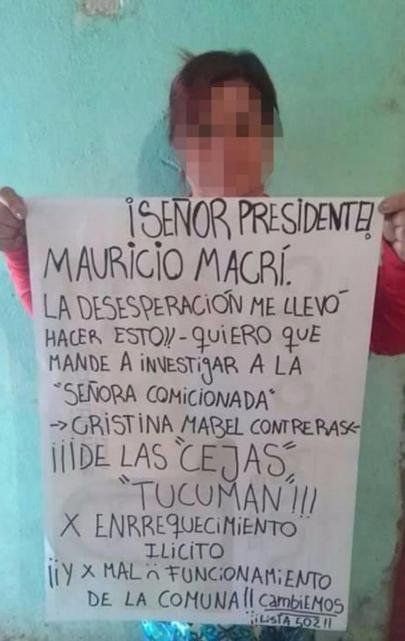 ¡SEÑOR PRESIDENTE!
MAURICIO MACRÍ.
LA DESESPERACIÓN ME LLEVÓ
HACER ESTO!! - QUIERO QUE
MANDE A INVESTIGAR A LA
"SEÑORA COMICIONADA"
→ CRISTINA MABEL CONTRERAS ←
¡¡¡DE LAS "CEJAS"
"TUCUMAN"!!!
X ENRREQUECIMIENTO
ILICITO
¡¡Y X MAL FUNCIONAMIENTO
DE LA COMUNA!! CambiEMOS
¡¡LISTA 502!!